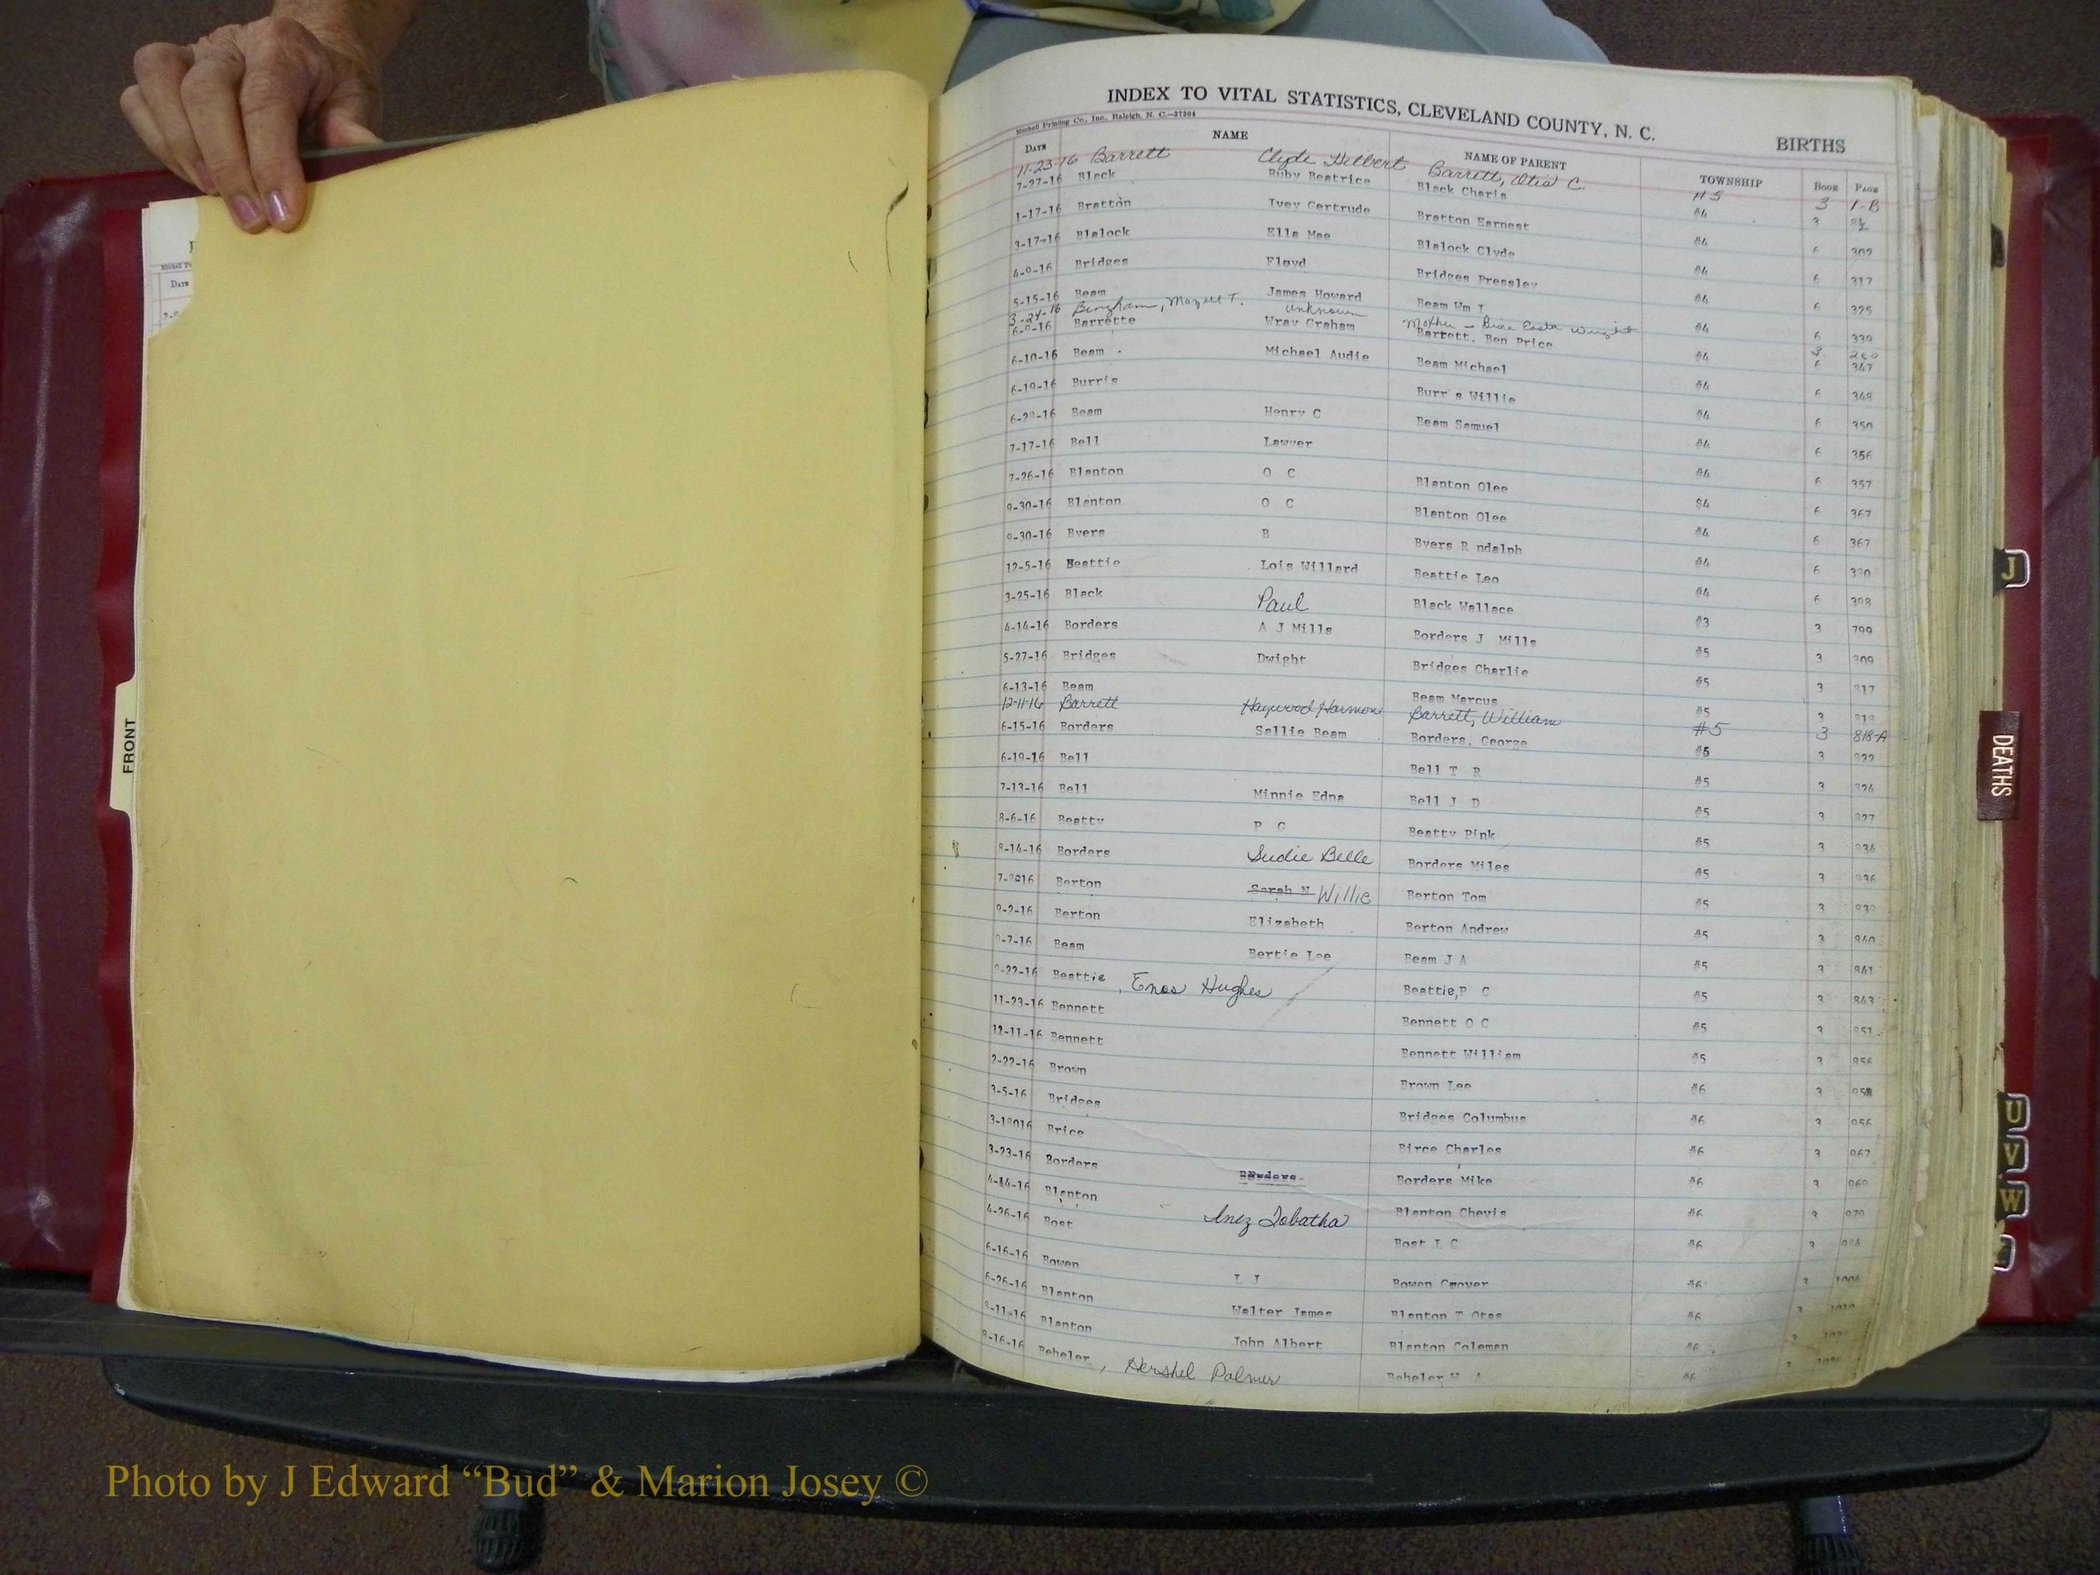 INDEX TO VITAL STATISTICS, CLEVELAND COUNTY, N. C.
BIRTHS
Mitchell Printing Co., Inc., Raleigh, N. C.—37304
DATE NAME NAME OF PARENT TOWNSHIP BOOK PAGE
11-23-16 Barrett Clyde Hilbert Barrett, Otis C. #5 3 1-B
7-27-16 Black Ruby Beatrice Black Charis #4 3
1-17-16 Bratton Ivey Gertrude Bratton Earnest #4 6 302
3-17-16 Blalock Ella Mae Blalock Clyde #4 6 317
4-9-16 Bridges Floyd Bridges Pressley #4 6 325
5-15-16 Beam James Howard Beam Wm T #4 6 339
3-24-16 Bingham, Mozell T. Unknown Mother - Easta Wright 3 280
6-9-16 Barrette Wray Graham Barrett. Ben Price #4 6 347
6-10-16 Beam Michael Audie Beam Michael #4 6 348
6-19-16 Burris Burr s Willie #4 6 350
6-28-16 Beam Henry C Beam Samuel #4 6 356
7-17-16 Bell Lawyer #4 6 357
7-26-16 Blanton O C Blanton Olee $4 6 367
9-30-16 Blanton O C Blanton Olee #4 6 367
9-30-16 Byers B Byers R ndalph #4 6
12-5-16 Beattie Lois Willard Beattie Leo #4 6 398
3-25-16 Black Paul Black Wallace #3 3 799
4-14-16 Borders A J Mills Borders J Mills #5 3 809
5-27-16 Bridges Dwight Bridges Charlie #5 3 817
6-13-16 Beam Beam Marcus #5 3 818
12-11-16 Barrett Haywood Harmon Barrett, William #5 3 818-A
6-15-16 Borders Sallie Beam Borders. George #5 3 822
6-19-16 Bell Bell T R #5 3 824
7-13-16 Bell Minnie Edna Bell J D #5 3 827
8-6-16 Beatty P C Beatty Pink #5 3 834
8-14-16 Borders Sudie Belle Borders Miles #5 3 836
7-8016 Berton Sarah N Willie Berton Tom #5 3
9-2-16 Berton Elizabeth Berton Andrew #5 3 840
9-7-16 Beam Bertie Lee Beam J A #5 3 841
9-22-16 Beattie, Enos Hughes Beattie,P C #5 3 843
11-23-16 Bennett Bennett O C #5 3 851
12-11-16 Bennett Bennett William #5 3 856
2-22-16 Brown Brown Lee #6 3
3-5-16 Bridges Bridges Columbus #6 3
3-19016 Brice Birce Charles #6 3 967
3-23-16 Borders Borders Borders Mike #6 3 969
4-14-16 Blanton Inez Tobatha Blanton Chevis #6 3 979
4-26-16 Bost Bost L C #6 3
6-16-16 Bowen L J Bowen Coover #6 3
6-26-16 Blanton Walter James Blanton T Otas #6 3
8-11-16 Blanton John Albert Blanton Coleman #6 3
8-16-16 Beheler, Hershel Palmer Beheler W A #6 3
FRONT
DATE
J
DEATHS
U
V
W
Photo by J Edward “Bud” & Marion Josey ©